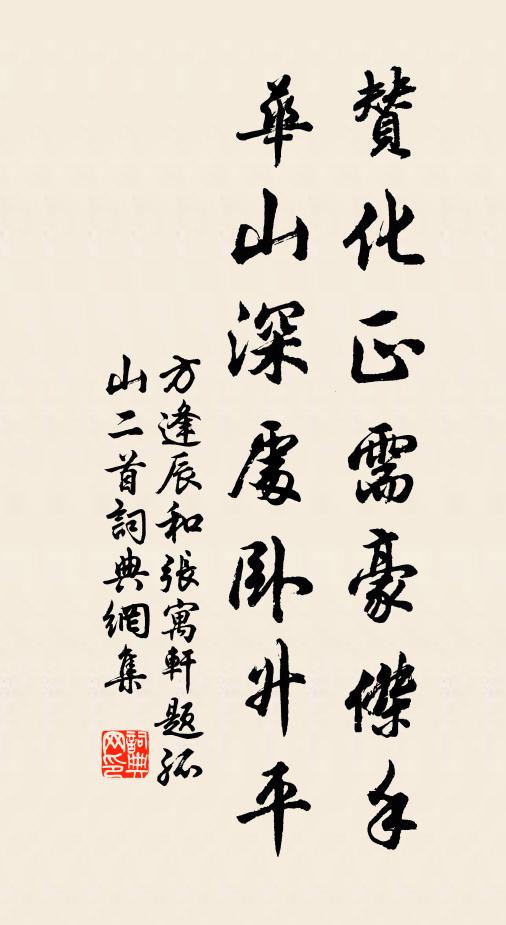 賛化正需豪傑手
華山深處臥升平
方逢辰和張寓軒題孤
山二首詞典網集
詞典網印